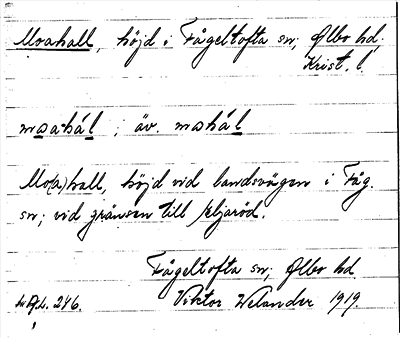 Moahall, höjd i Fågeltofta sn; Ølbo hd.
Krist. l.
moahál ; äv. mohál
Mo(a)hall, höjd vid landsvägen i Fåg.
sn; vid gränsen till Eljaröd.
Fågeltofta sn; Ølbo hd
Viktor Welander 1919.
246.